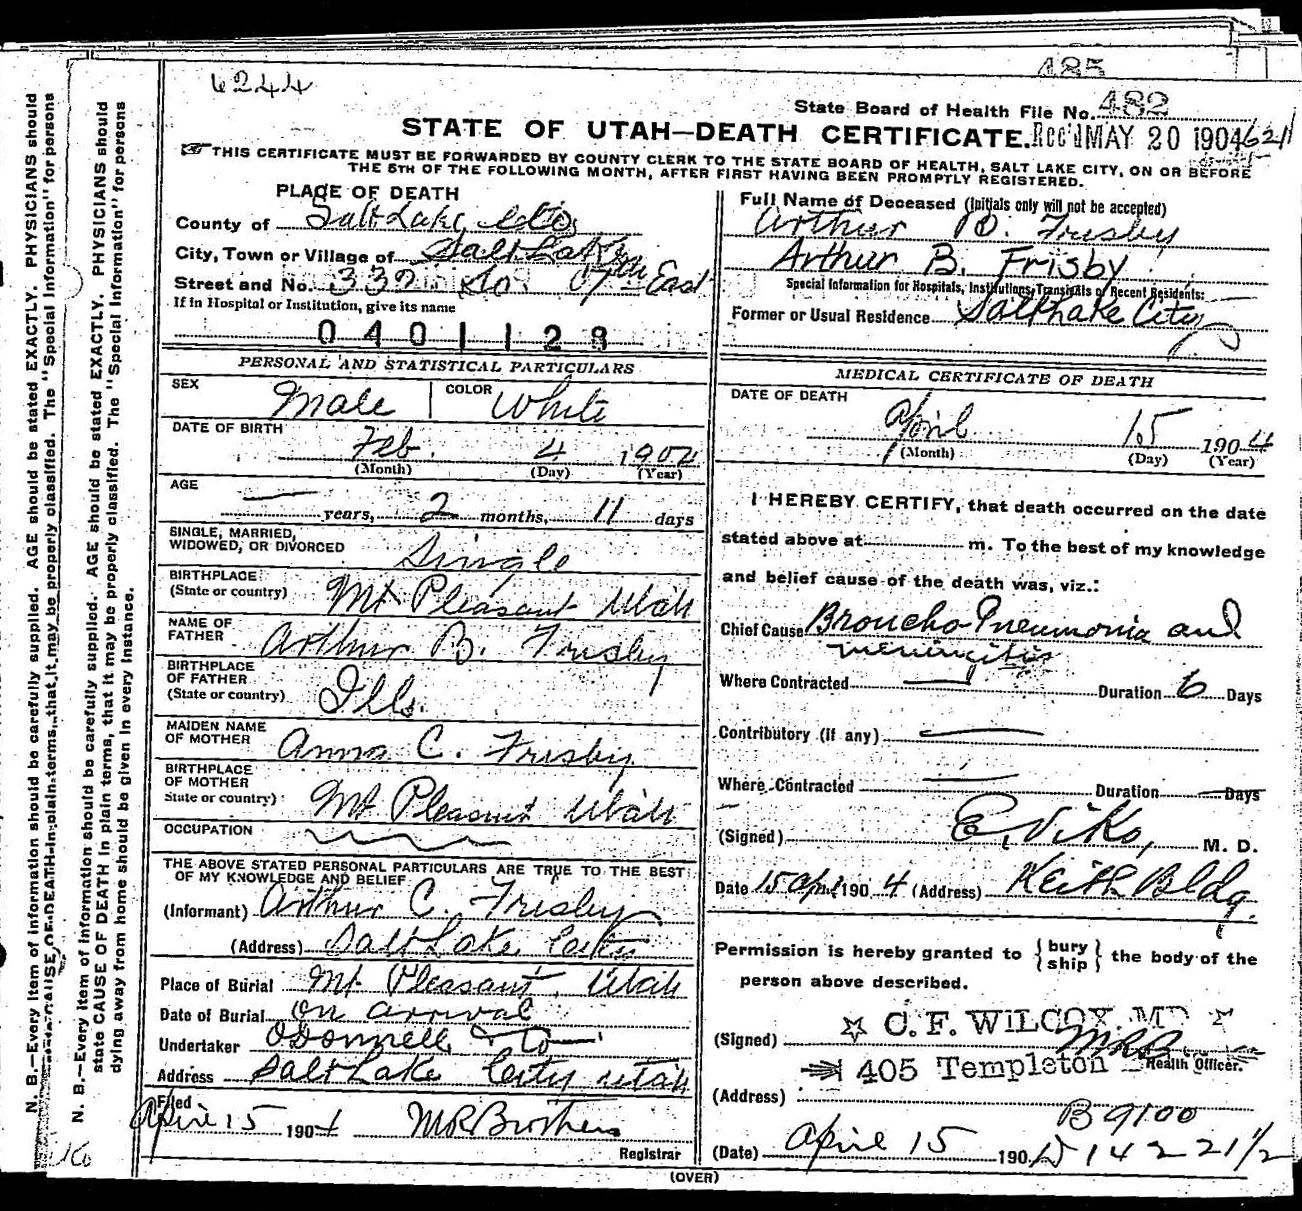 485
6244
State Board of Health File No. 482
STATE OF UTAH—DEATH CERTIFICATE. Rec'd MAY 20 1904 621
THIS CERTIFICATE MUST BE FORWARDED BY COUNTY CLERK TO THE STATE BOARD OF HEALTH, SALT LAKE CITY, ON OR BEFORE
THE 5TH OF THE FOLLOWING MONTH, AFTER FIRST HAVING BEEN PROMPTLY REGISTERED.
PLACE OF DEATH
County of Salt Lake Co
City, Town or Village of Salt Lake
Street and No. 332 So 7th East
If in Hospital or Institution, give its name
0401128
PERSONAL AND STATISTICAL PARTICULARS
SEX Male COLOR White
DATE OF BIRTH Feb. 4 1904
(Month) (Day) (Year)
AGE — years, 2 months, 11 days
SINGLE, MARRIED,
WIDOWED, OR DIVORCED Single
BIRTHPLACE
(State or country) Mt Pleasant Utah
NAME OF
FATHER Arthur B. Frisby
BIRTHPLACE
OF FATHER
(State or country) Ills.
MAIDEN NAME
OF MOTHER Anna C. Frisby
BIRTHPLACE
OF MOTHER
State or country) Mt Pleasant Utah
OCCUPATION
THE ABOVE STATED PERSONAL PARTICULARS ARE TRUE TO THE BEST
OF MY KNOWLEDGE AND BELIEF
(Informant) Arthur C. Frisby
(Address) Salt Lake City
Place of Burial Mt Pleasant, Utah
Date of Burial On arrival
Undertaker O'Donnell & Co
Address Salt Lake City Utah
Filed
April 15 1904 M R Brothers
Registrar
Full Name of Deceased (Initials only will not be accepted)
Arthur B. Frisby
Arthur B. Frisby
Special Information for Hospitals, Institutions, Transients or Recent Residents:
Former or Usual Residence Salt Lake City
MEDICAL CERTIFICATE OF DEATH
DATE OF DEATH
April 15 1904
(Month) (Day) (Year)
I HEREBY CERTIFY, that death occurred on the date
stated above at m. To the best of my knowledge
and belief cause of the death was, viz.:
Chief Cause Broncho-Pneumonia and
meningitis
Where Contracted — Duration 6 Days
Contributory (if any) —
Where Contracted — Duration — Days
(Signed) E. Viko, M. D.
Date 15 April 1904 (Address) Keith Bldg.
Permission is hereby granted to {bury ship} the body of the
person above described.
(Signed) C. F. WILCOX. MD
MRB Health Officer.
405 Templeton
(Address)
B 9100
(Date) April 15 190 14 2 2 21 1/2
(OVER)
N. B.—Every item of information should be carefully supplied. AGE should be stated EXACTLY. PHYSICIANS should
state CAUSE OF DEATH in plain terms, that it may be properly classified. The "Special Information" for persons
dying away from home should be given in every instance.
N. B.—Every item of information should be carefully supplied. AGE should be stated EXACTLY. PHYSICIANS should
CAUSE OF DEATH in plain terms, that it may be properly classified. The "Special Information" for persons